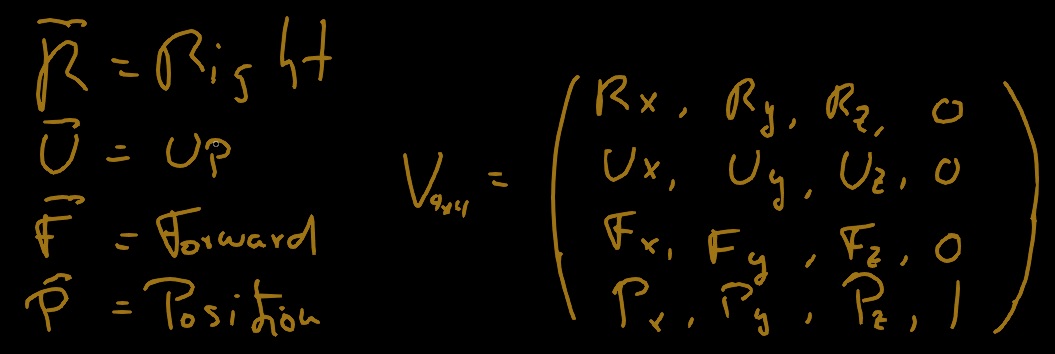 R = Right
U = Up
F = Forward
P = Position
V4x4 =
Rx, Ry, Rz, 0
Ux, Uy, Uz, 0
Fx, Fy, Fz, 0
Px, Py, Pz, 1